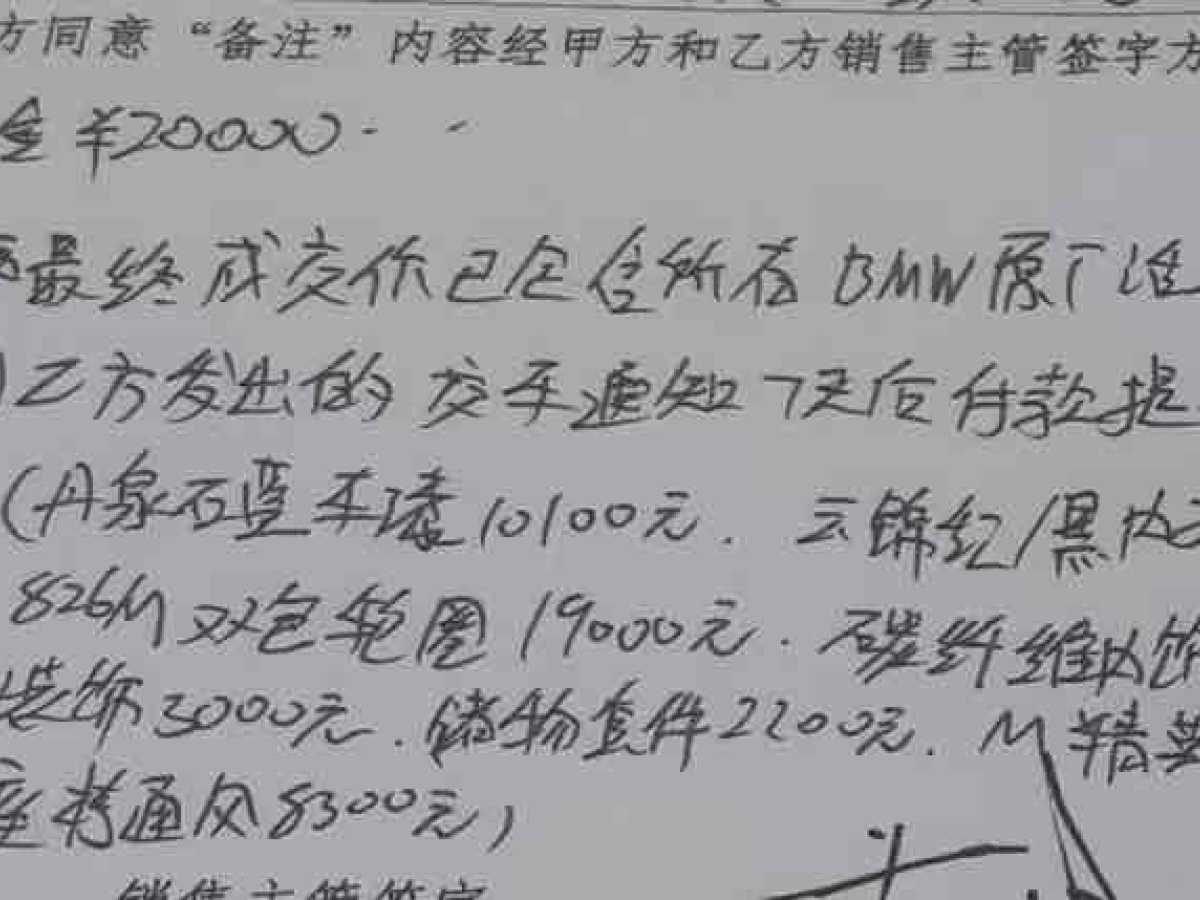 方同意“备注”内容经甲方和乙方销售主管签字方
金 ¥20000.
最终成交价已包含所有BMW原厂选
乙方发出的交车通知7天后付款提
(丹泉石蓝车漆10100元. 云锦红/黑内
826M双色轮圈19000元. 碳纤维内饰
装饰3000元. 储物套件2200元. M精英
座椅通风8300元)
销售主管签字